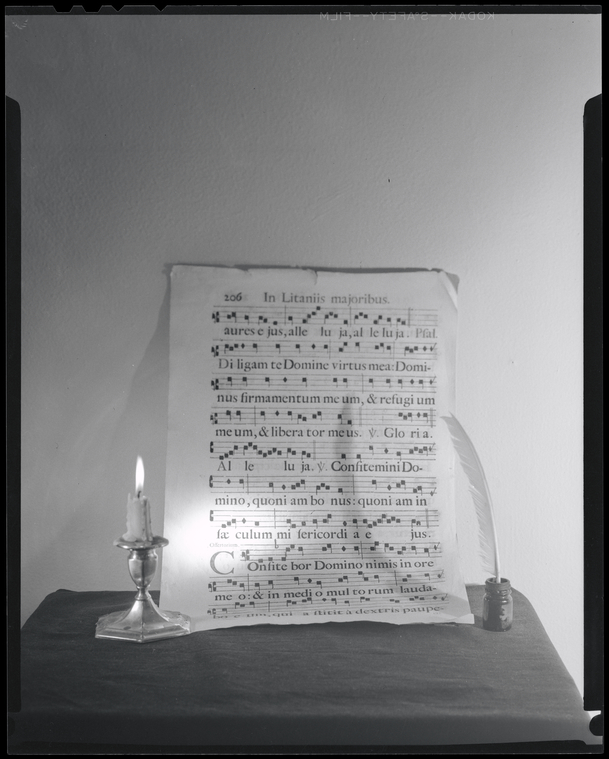 KODAK--SAFETY--FILM
206 In Litaniis majoribus.
aures e jus, alle lu ja, al le lu ja. Psal.
Di ligam te Domine virtus mea: Domi-
nus firmamentum me um, & refugi um
me um, & libera tor me us. ℣. Glo ri a.
Al le lu ja. ℣. Confitemini Do-
mino, quoni am bo nus: quoni am in
sæ culum mi sericordi a e jus.
COnfite bor Domino nimis in ore
me o: & in medi o mul to rum lauda-
bo e um, qui a stitit à dextris paupe-